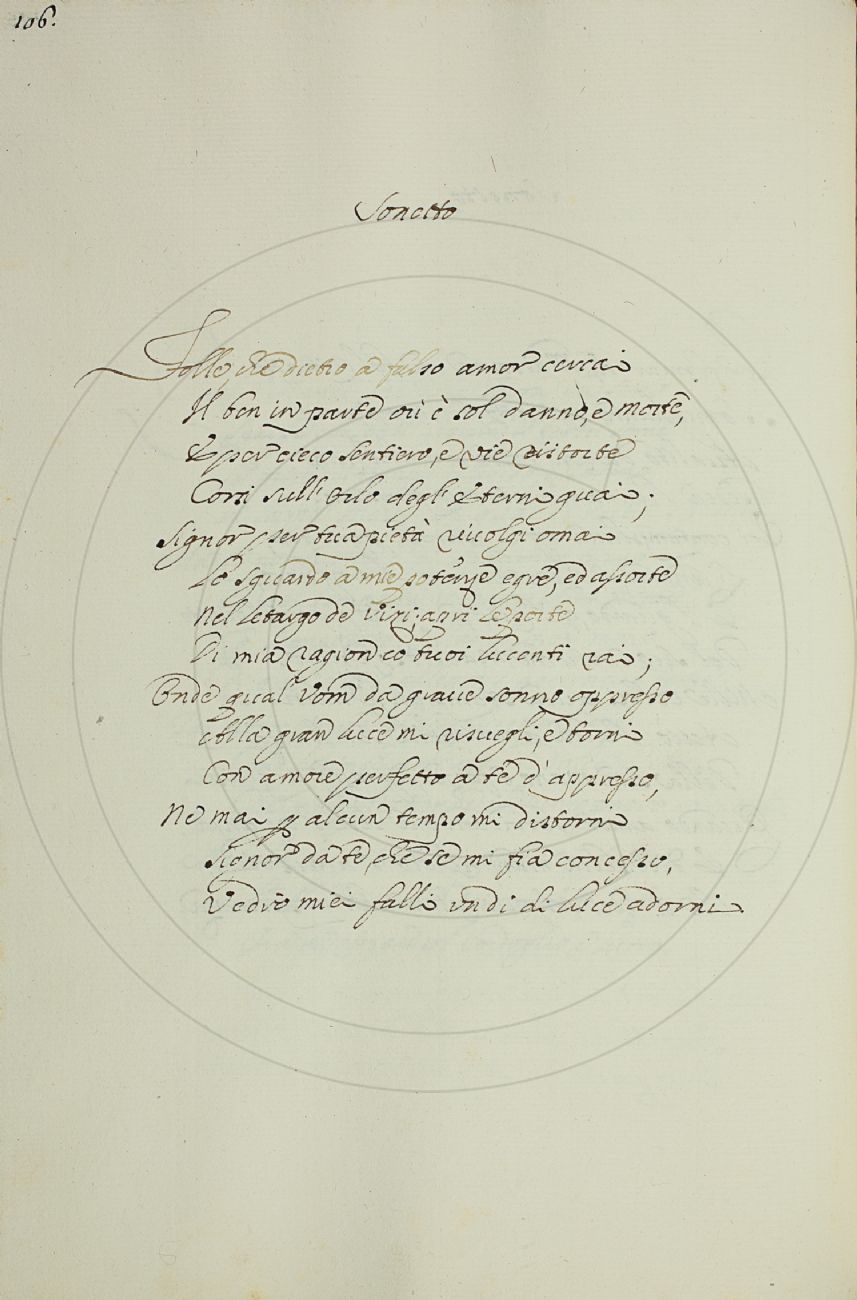 106.
Sonetto
Folle, che dietro a falso amor cercai
Il ben in parte ov' è sol danno, e morte,
E per cieco sentiero, e vie distorte
Corsi sull' orlo degl' Eterni guai;
Signor per tua pietà rivolgi omai
Lo sguardo a mie potenze egre, ed assorte
Nel letargo de Vizi; apri le porte
Di mia ragion co tuoi lucenti rai;
Onde qual Vom da grave sonno oppresso
Alla gran luce mi risvegli, e torni
Con amore perfetto a te d'appresso,
Ne mai p alcun tempo mi distorni
Signor da te, che se mi fia concesso,
Vedrò miei falli un dì di luce adorni